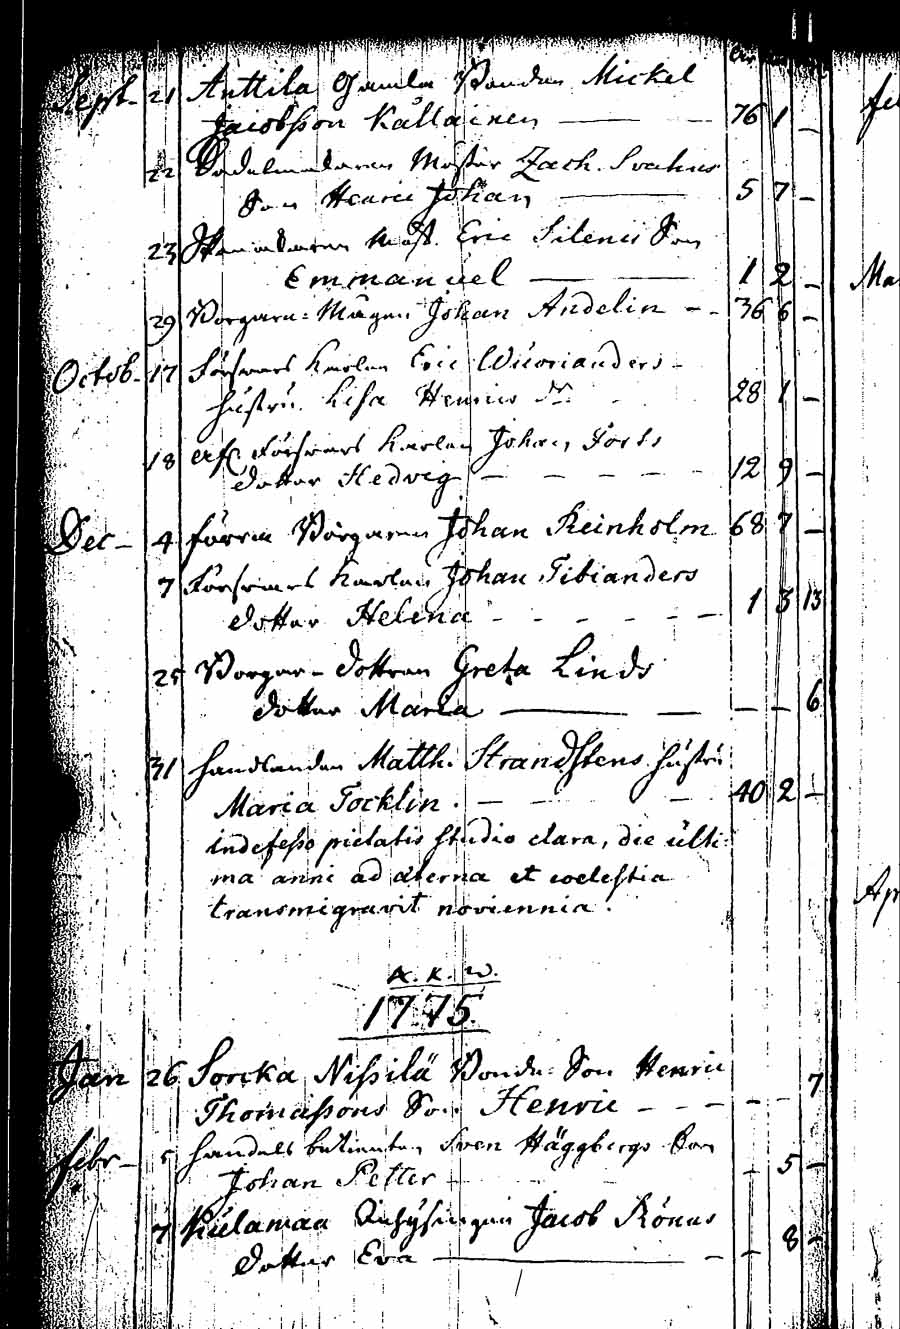 11
Sept- 21 Anttila Gamla Bonden Mickel
Jacobsson Kallainen — — 76 1 –
22 Sadelmakaren Mester Zach. Svahns
Son Henric Johan — 5 7 –
23 Mäst. Eric Silenii Son
Emmanuel — — 1 2 –
29 Borgare-Mågen Johan Andelin – - 36 6 –
Octob- 17 Försvars Karlen Eric Wuorianders
hustru Lisa Henrics dr 28 1 –
18 Försvars Karlen Johan Forss
dotter Hedvig – – – – – 12 9 –
Dec- 4 förra Borgaren Johan Reinholm 68 7 –
7 Försvars Karlen Johan Tibianders
dotter Helena - - - - – 1 3 13
25 Borgar-dottren Greta Linds
dotter Maria — — – – 6
31 handlanden Matth. Strandstens hustru
Maria Tocklin. – – – 40 2 –
indefesso pietatis studio clara, die ulti-
ma anni ad æterna et coelestia
transmigravit noviennia.
A. K. W.
1775.
Jan 26 Sorcka Nissilä Bonde-Son Henric
Thomassons Son Henric - - - - - 7
febr- 5 handels betienten Sven Häggbergs Son
Johan Petter – – 5 –
7 Kulamaa Inhysingen Jacob Rönns
dotter Eva — – – 8 –